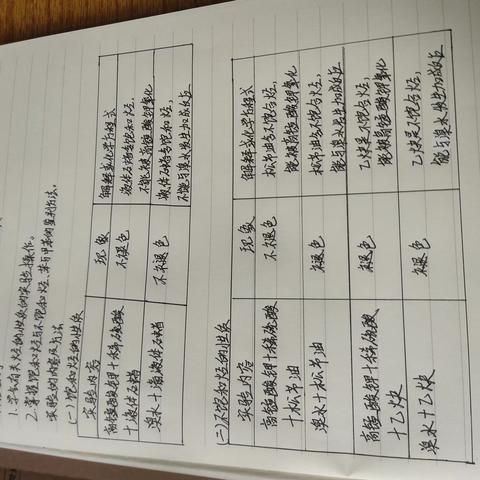 1. 学会有关烃的性质的实验操作。
2. 掌握饱和烃与不饱和烃、苯与甲苯的鉴别方法。
实验的内容及方法
(一) 饱和烃的性质
实验内容 现象 解释或化学方程式
高锰酸钾+稀硫酸 不褪色 液体石蜡含饱和烃,
+液体石蜡 不能被高锰酸钾氧化
溴水+液体石蜡 不褪色 液体石蜡含饱和烃,
不能与溴水发生加成反应
(二) 不饱和烃的性质
实验内容 现象 解释或化学方程式
高锰酸钾+稀硫酸 不褪色 松节油含不饱和烃,
+松节油 能被高锰酸钾氧化
溴水+松节油 褪色 松节油含不饱和烃,
能与溴水发生加成反应
高锰酸钾+稀硫酸 褪色 乙炔是不饱和烃,
+乙炔 能被高锰酸钾氧化
溴水+乙炔 褪色 乙炔是不饱和烃,
能与溴水发生加成反应